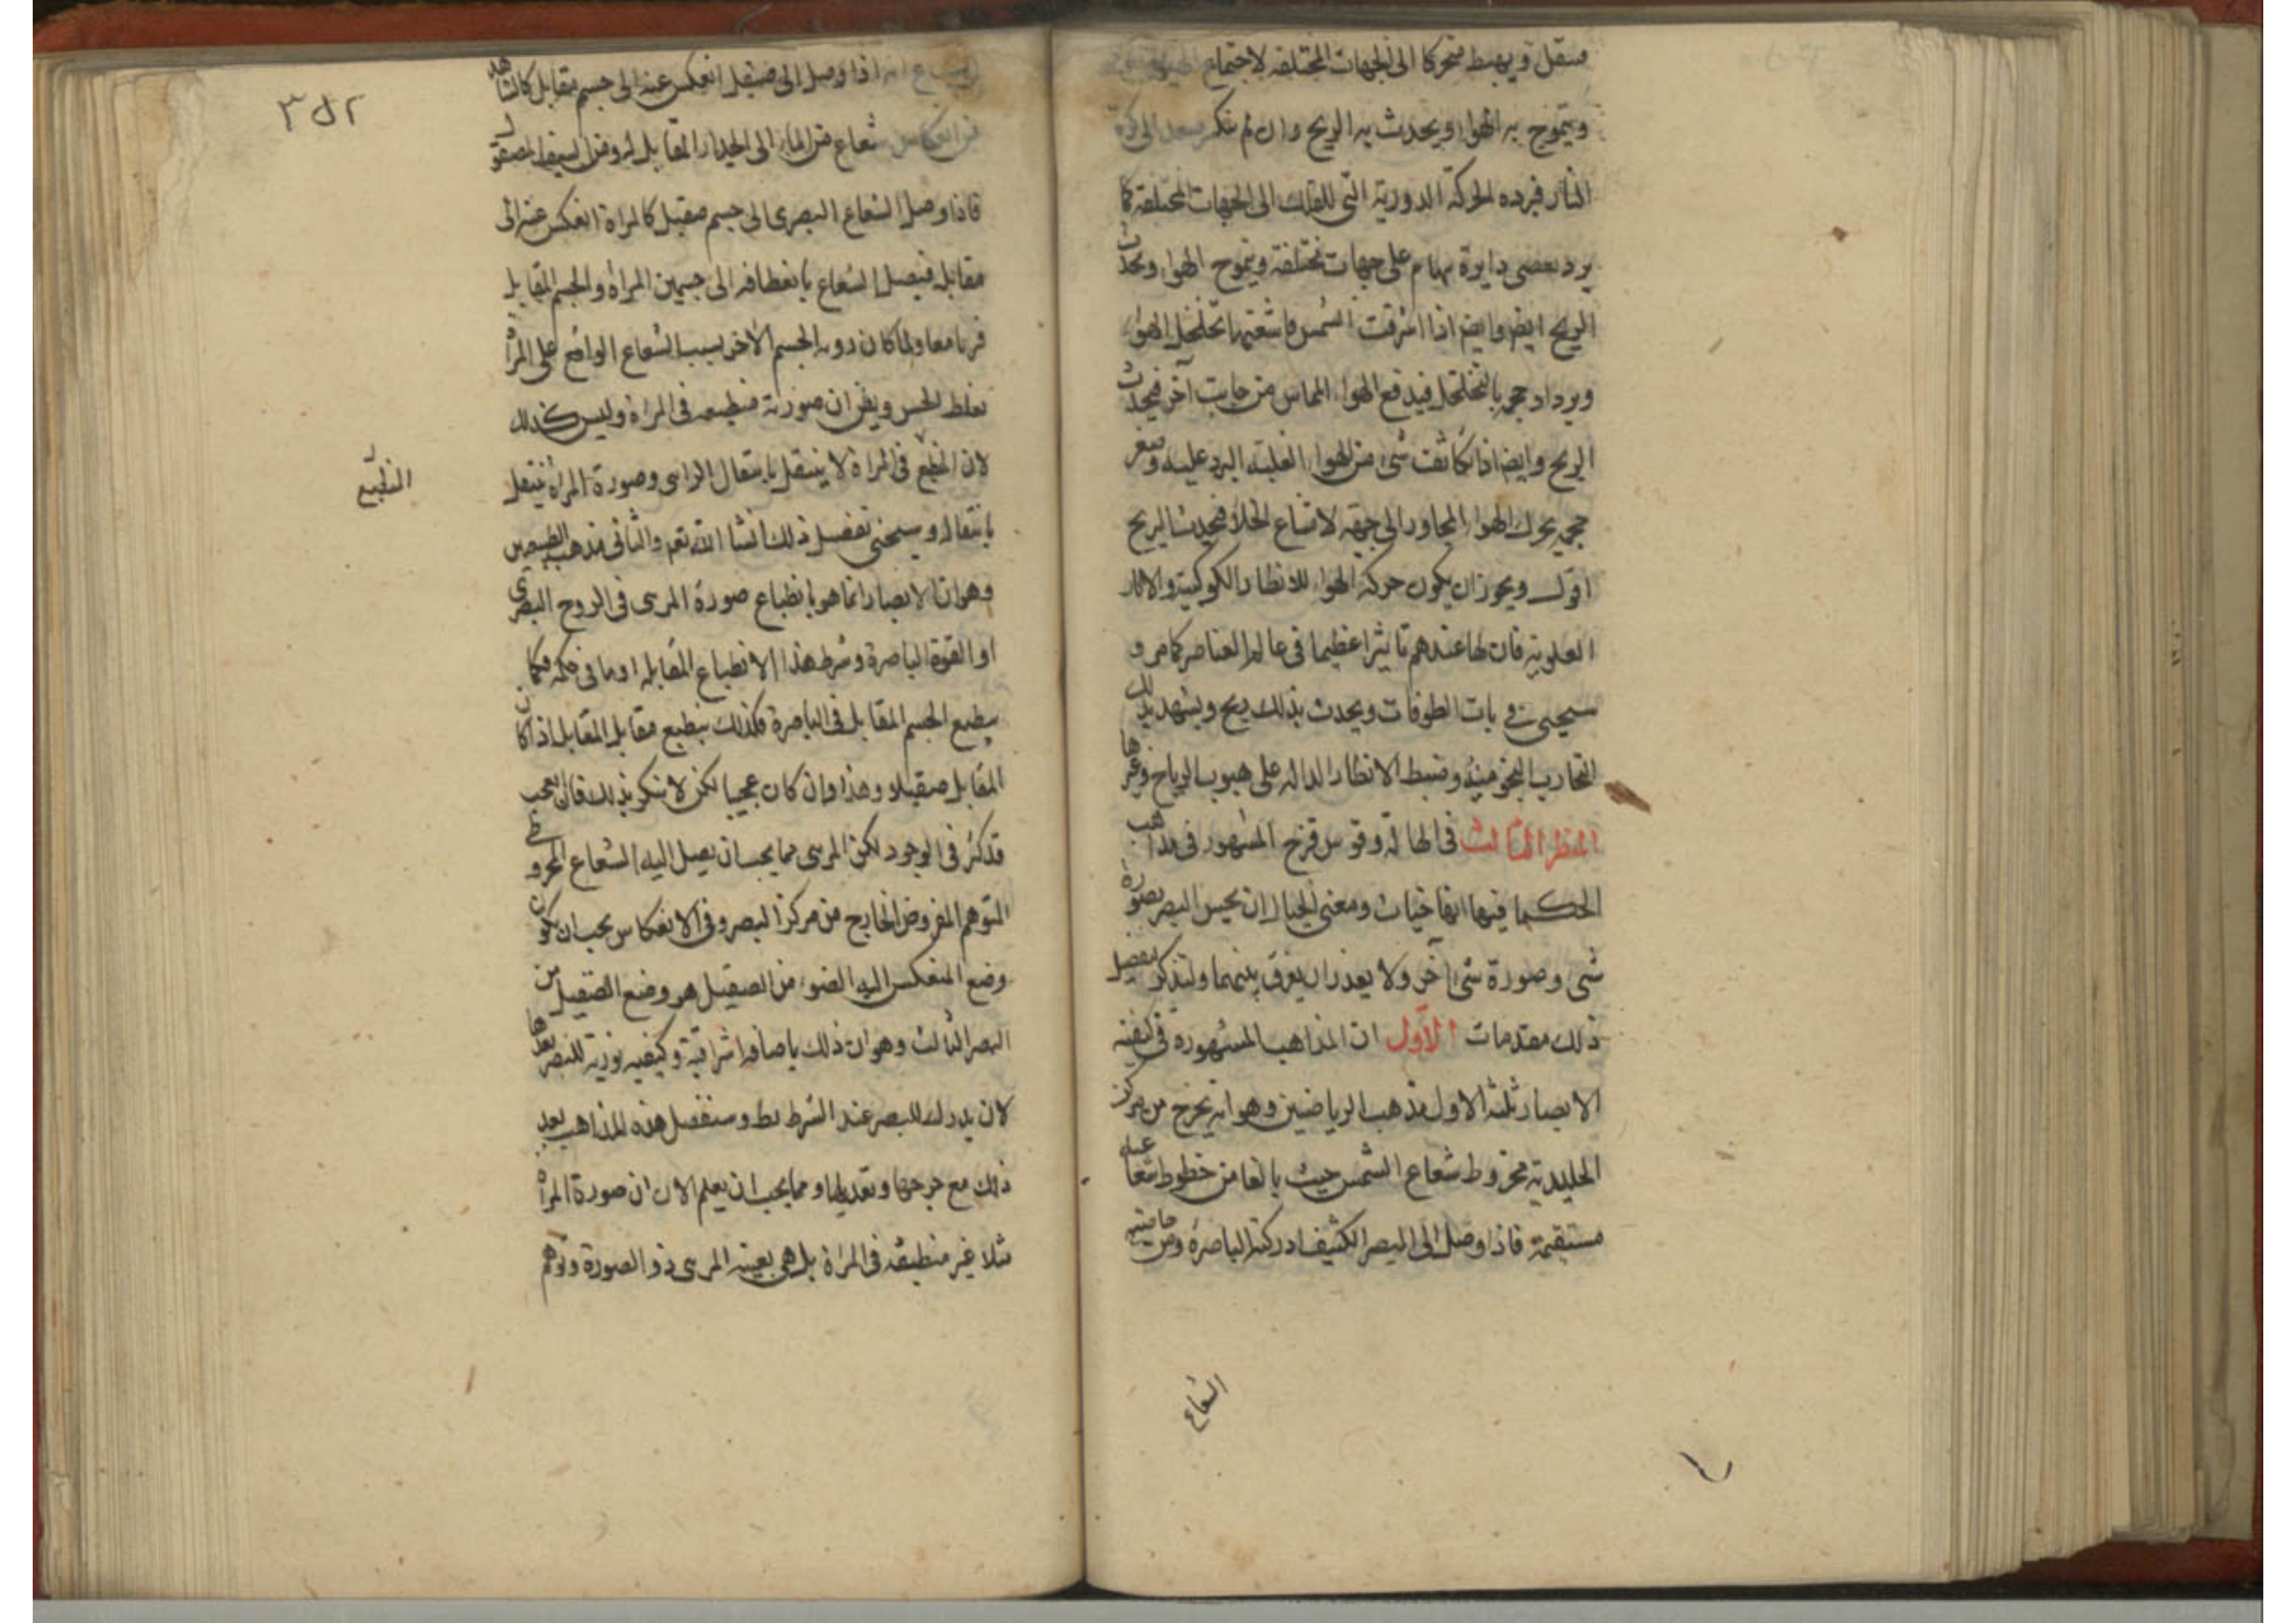 فيثقل ويهبط متحركا الى الجهات المختلفه لاجتماع
ويتموج به الهواء ويحدث به الريح وان لم ينكسر يصعد الى كرة
النار فيرده الحركة الدورية التى للفلك الى الجهات المختلفة كما
يرد بعضى دايرة سهام على جهات مختلفة ويتموج الهواء ويحدث
الريح ايضا وايضا اذا اشرقت الشمس باشعتها تخلخل الهواء
ويزداد حجمه بالتخلخل فيدفع الهواء المماس من جانب آخر فيحدث
الريح وايضا اذا تكاثفت شئ من الهواء لغلبة البرد عليه وصغر
حجمه يحرك الهواء المجاور الى جهته لامتناع الخلاء فيحدث الريح
اقول ويجوز ان يكون حركة الهواء للانظار الكوكبية والاثار
العلوية فان لها عندهم تاثيرا عظيما فى عالم العناصر كما مر و
سيجئ فى باب الطوفات ويحدث بذلك ريح ويشهد بذلك
التجارب النجومية وضبط الانظار الدالة على هبوب الرياح وغيرها
النظر الثالث فى الهالة وقوس قزح المشهور فى مذاهب
الحكما فيها انها خيالات ومعنى الخيال ان يحس البصر بصورة
شئ وصورة شئ آخر ولا يقدر ان يفرق بينهما ولنذكر لتفصيل
ذلك مقدمات الاول ان المذاهب المشهورة فى كيفية
الابصار ثلثة الاول مذهب الرياضيين وهو انه يخرج من مركز
الجليدية مخروط شعاع الشمس حيث بالغا من خطوط شعاعية
مستقيمة فاذا وصل الى البصر الكثيف ادركته الباصرة ومن خاصية
الشعاع
٣٥٢
الشعاع انه اذا وصل الى صقيل انعكس عنه الى جسم مقابل كما نشاهد
من انعكاس شعاع من الماء الى الجدار المقابل له ومن السيف المصقول
فاذا وصل الشعاع البصرى الى جسم صقيل كالمراة انعكس عنه الى
مقابله فيصل الشعاع بانعطافه الى جسمين المراة والجسم المقابل
فريا معا ولما كان روية الجسم الاخر بسبب الشعاع الواقع على المراة
يغلط الحس ويظن ان صورته منطبعة فى المراة وليس كذلك
لان المنطبع فى المراة لا ينتقل بانتقال الرائى وصورة المراة ينتقل
المنطبع
بانتقاله وسيجئ تفصيل ذلك انشا الله تعم والثانى مذهب الطبيعيين
وهو ان الابصار انما هو بانطباع صورة المرئى فى الروح البصرى
او القوة الباصرة وشرط هذا الانطباع المقابلة او ما فى حكمه فكما
ينطبع الجسم المقابل فى الباصرة فكذلك ينطبع مقابل المقابل اذا كان
المقابل صقيلا وهذا وان كان عجيبا لكن لا ينكر بذلك فان العجب
قد كثر فى الوجود لكن المرئى مما يجب ان يصل اليه الشعاع المخروطى
المتوهم المفروض الخارج من مركز البصر وفى الانعكاس يجب ان يكون
وضع المنعكس اليه الضوء من الصقيل هو وضع الصقيل من
البصر الثالث وهو ان ذلك باضافة اشراقية وكيفية نورية للبصر بعدها
لان يدرك للبصر عند الشرط بط وسنفصل هذه المذاهب بعد
ذلك مع جرحها وتعديلها ومما يجب ان يعلم الان ان صورة المراة
مثلا غير منطبقة فى المراة بل هى بعينه المرئى ذو الصورة وتوهم